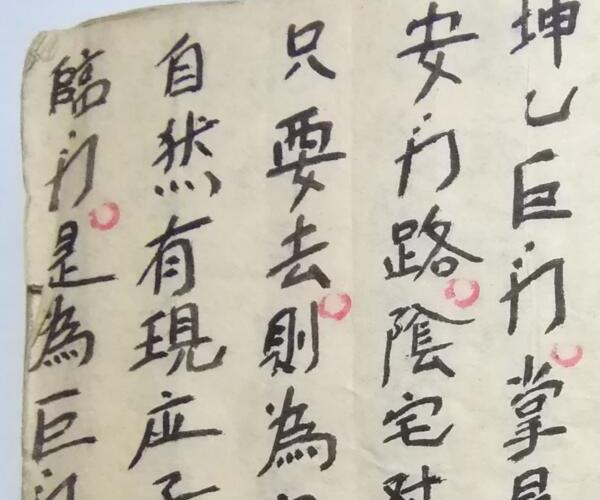 坤乙巨门掌
安门路陰宅
只要去則為
自然有現应
臨门是為巨门